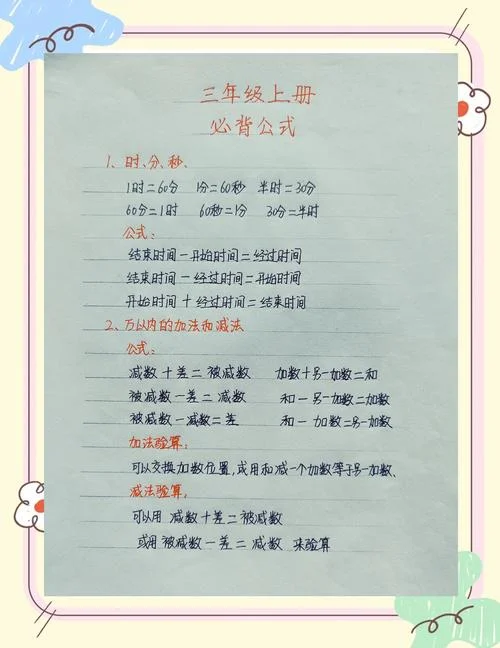 三年级上册
必背公式
1、时、分、秒、
1时=60分 1分=60秒 半时=30分
60分=1时 60秒=1分 30分=半时
公式:
结束时间-开始时间=经过时间
结束时间-经过时间=开始时间
开始时间+经过时间=结束时间
2、万以内的加法和减法
公式:
减数+差=被减数 加数+另一加数=和
被减数-差=减数 和-另一加数=加数
被减数-减数=差 和-加数=另一加数
加法验算:
可以交换加数位置,或用和减一个加数等于另一加数、
减法验算,
可以用 减数+差=被减数
或用 被减数-差=减数 来验算